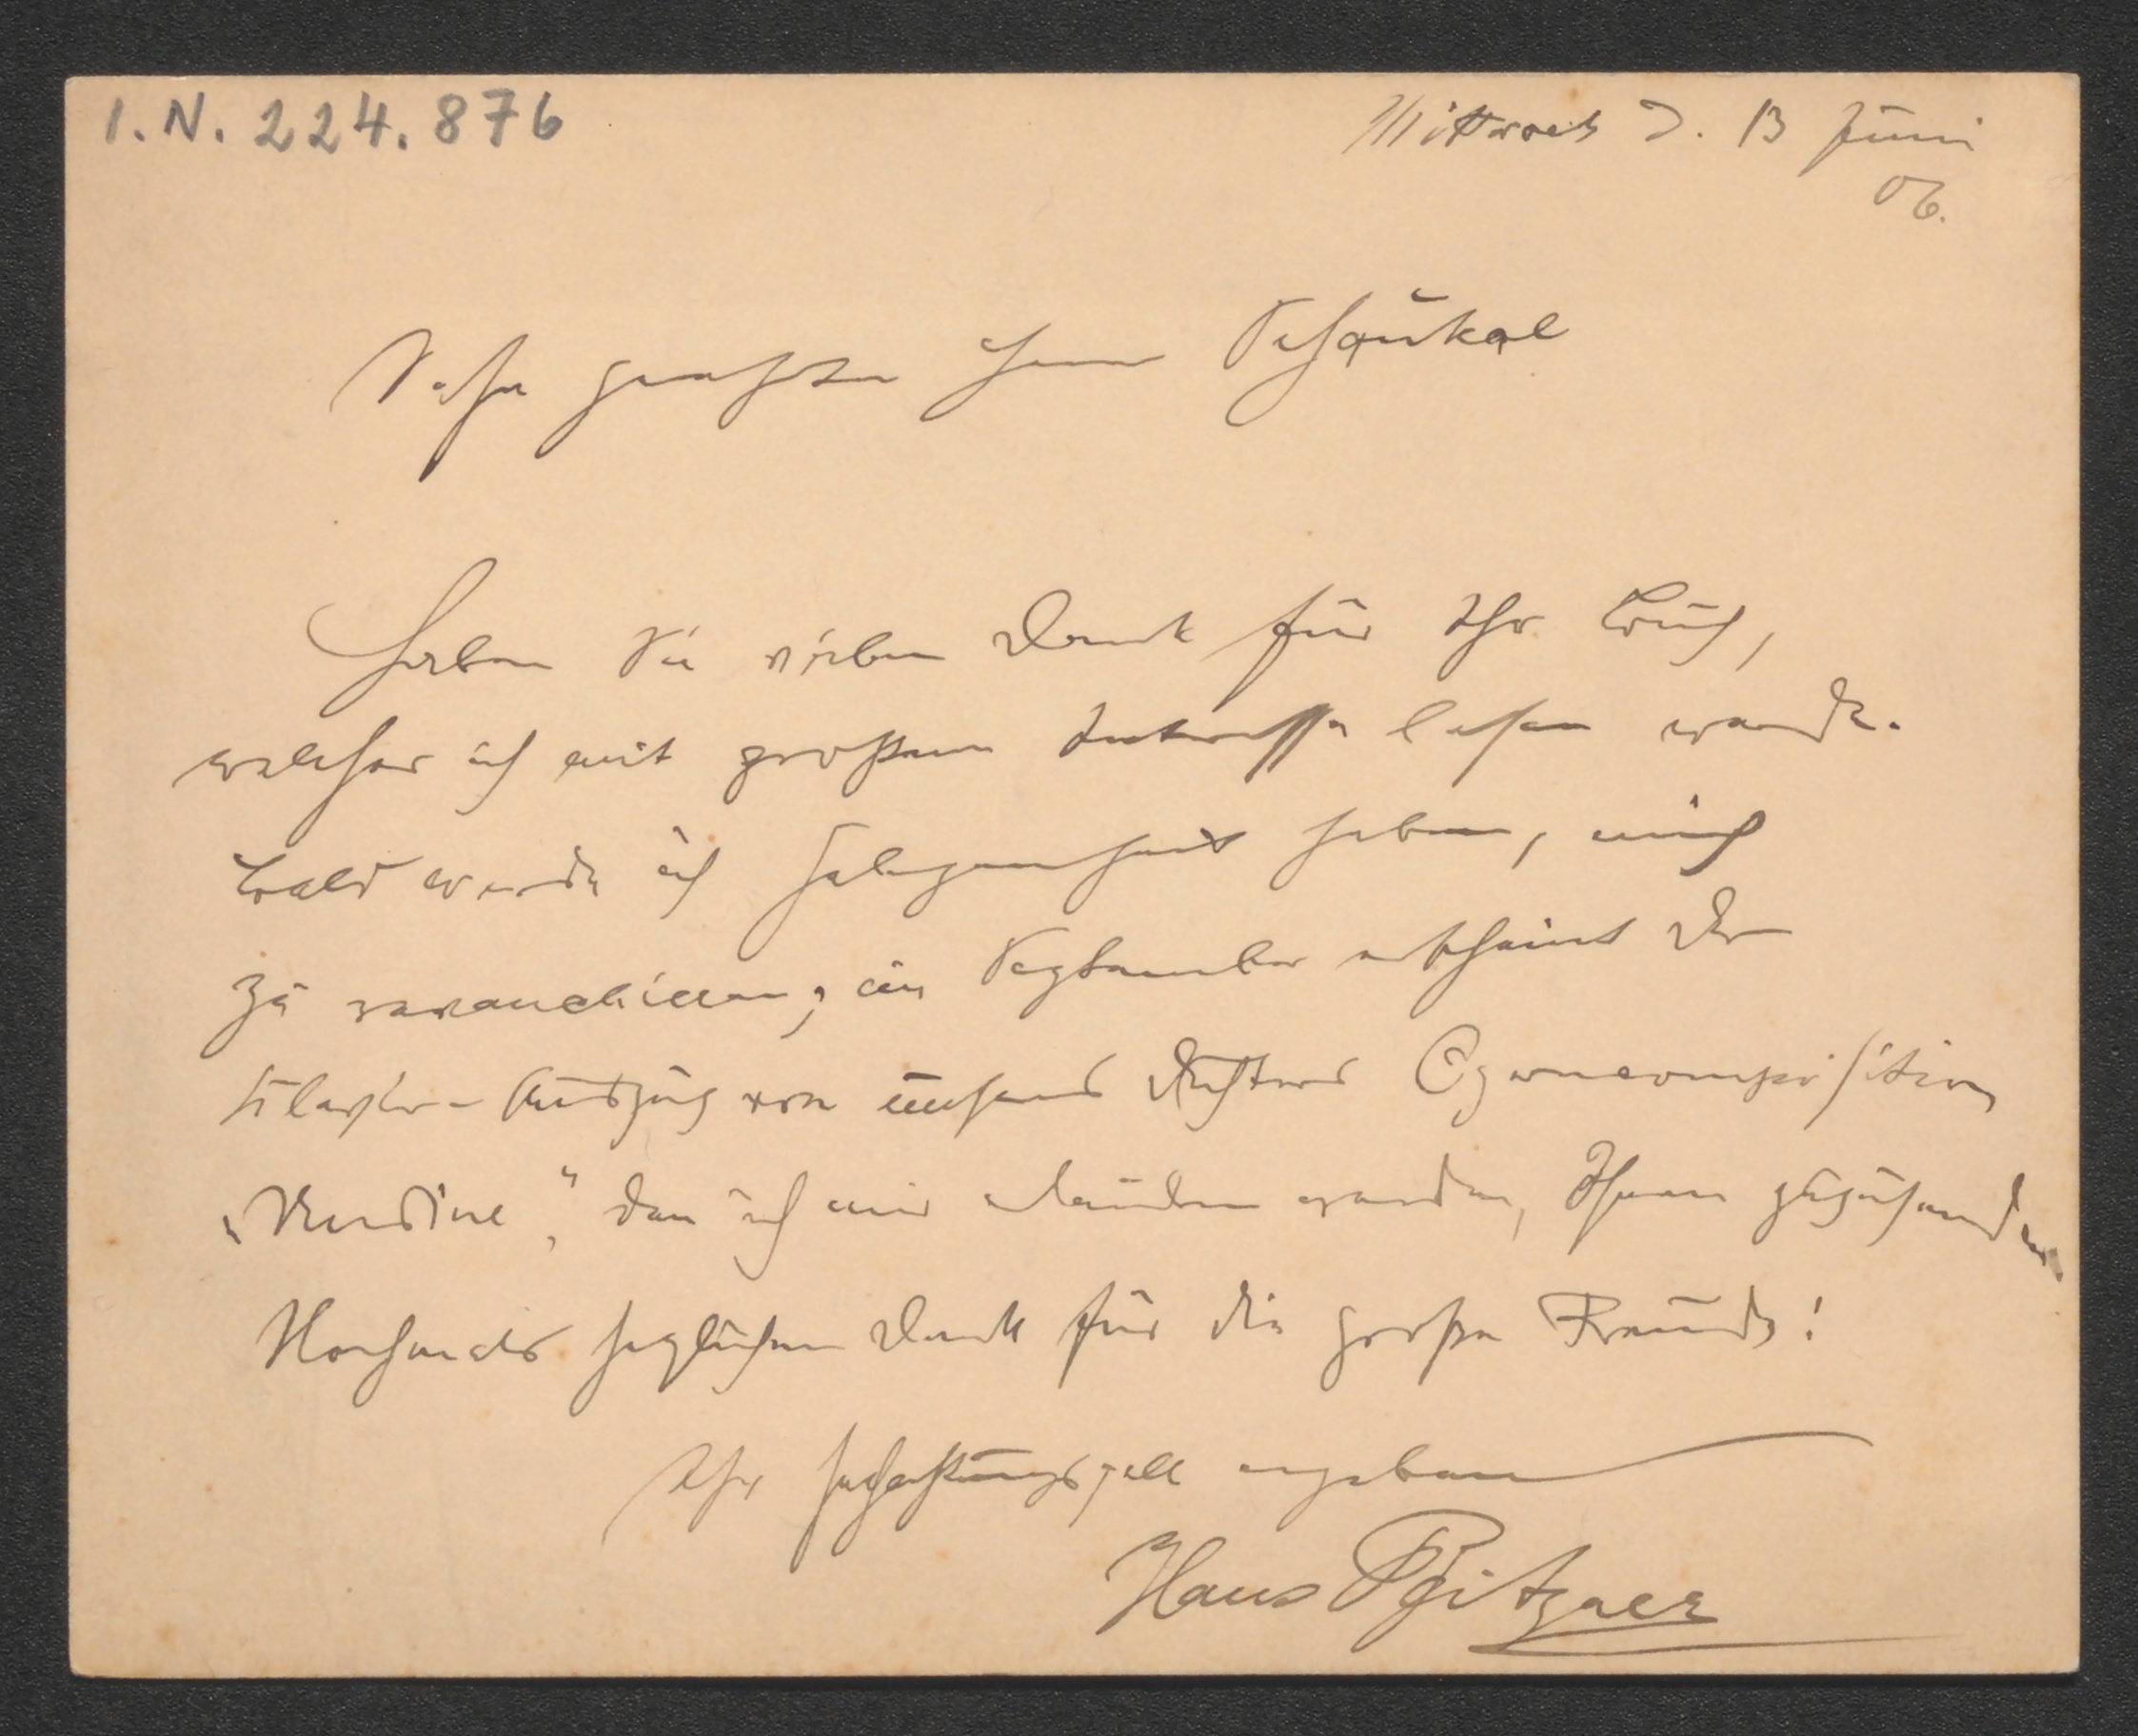 I.N. 224.876
Mittwoch d. 13 Juni
06.
Sehr geehrter Herr Schaukal
Haben Sie vielen Dank für Ihr Buch,
welches ich mit großem Interesse lesen werde.
Bald werde ich Gelegenheit haben, mich
zu revanchieren; im September erscheint der
Klavier-Auszug von unsres Dichters Operncomposition
„Undine“, den ich mir erlauben werde, Ihnen zuzusenden
Nochmals herzlichen Dank für die große Freude!
Ihr hochachtungsvoll ergebener
Hans Pfitzner